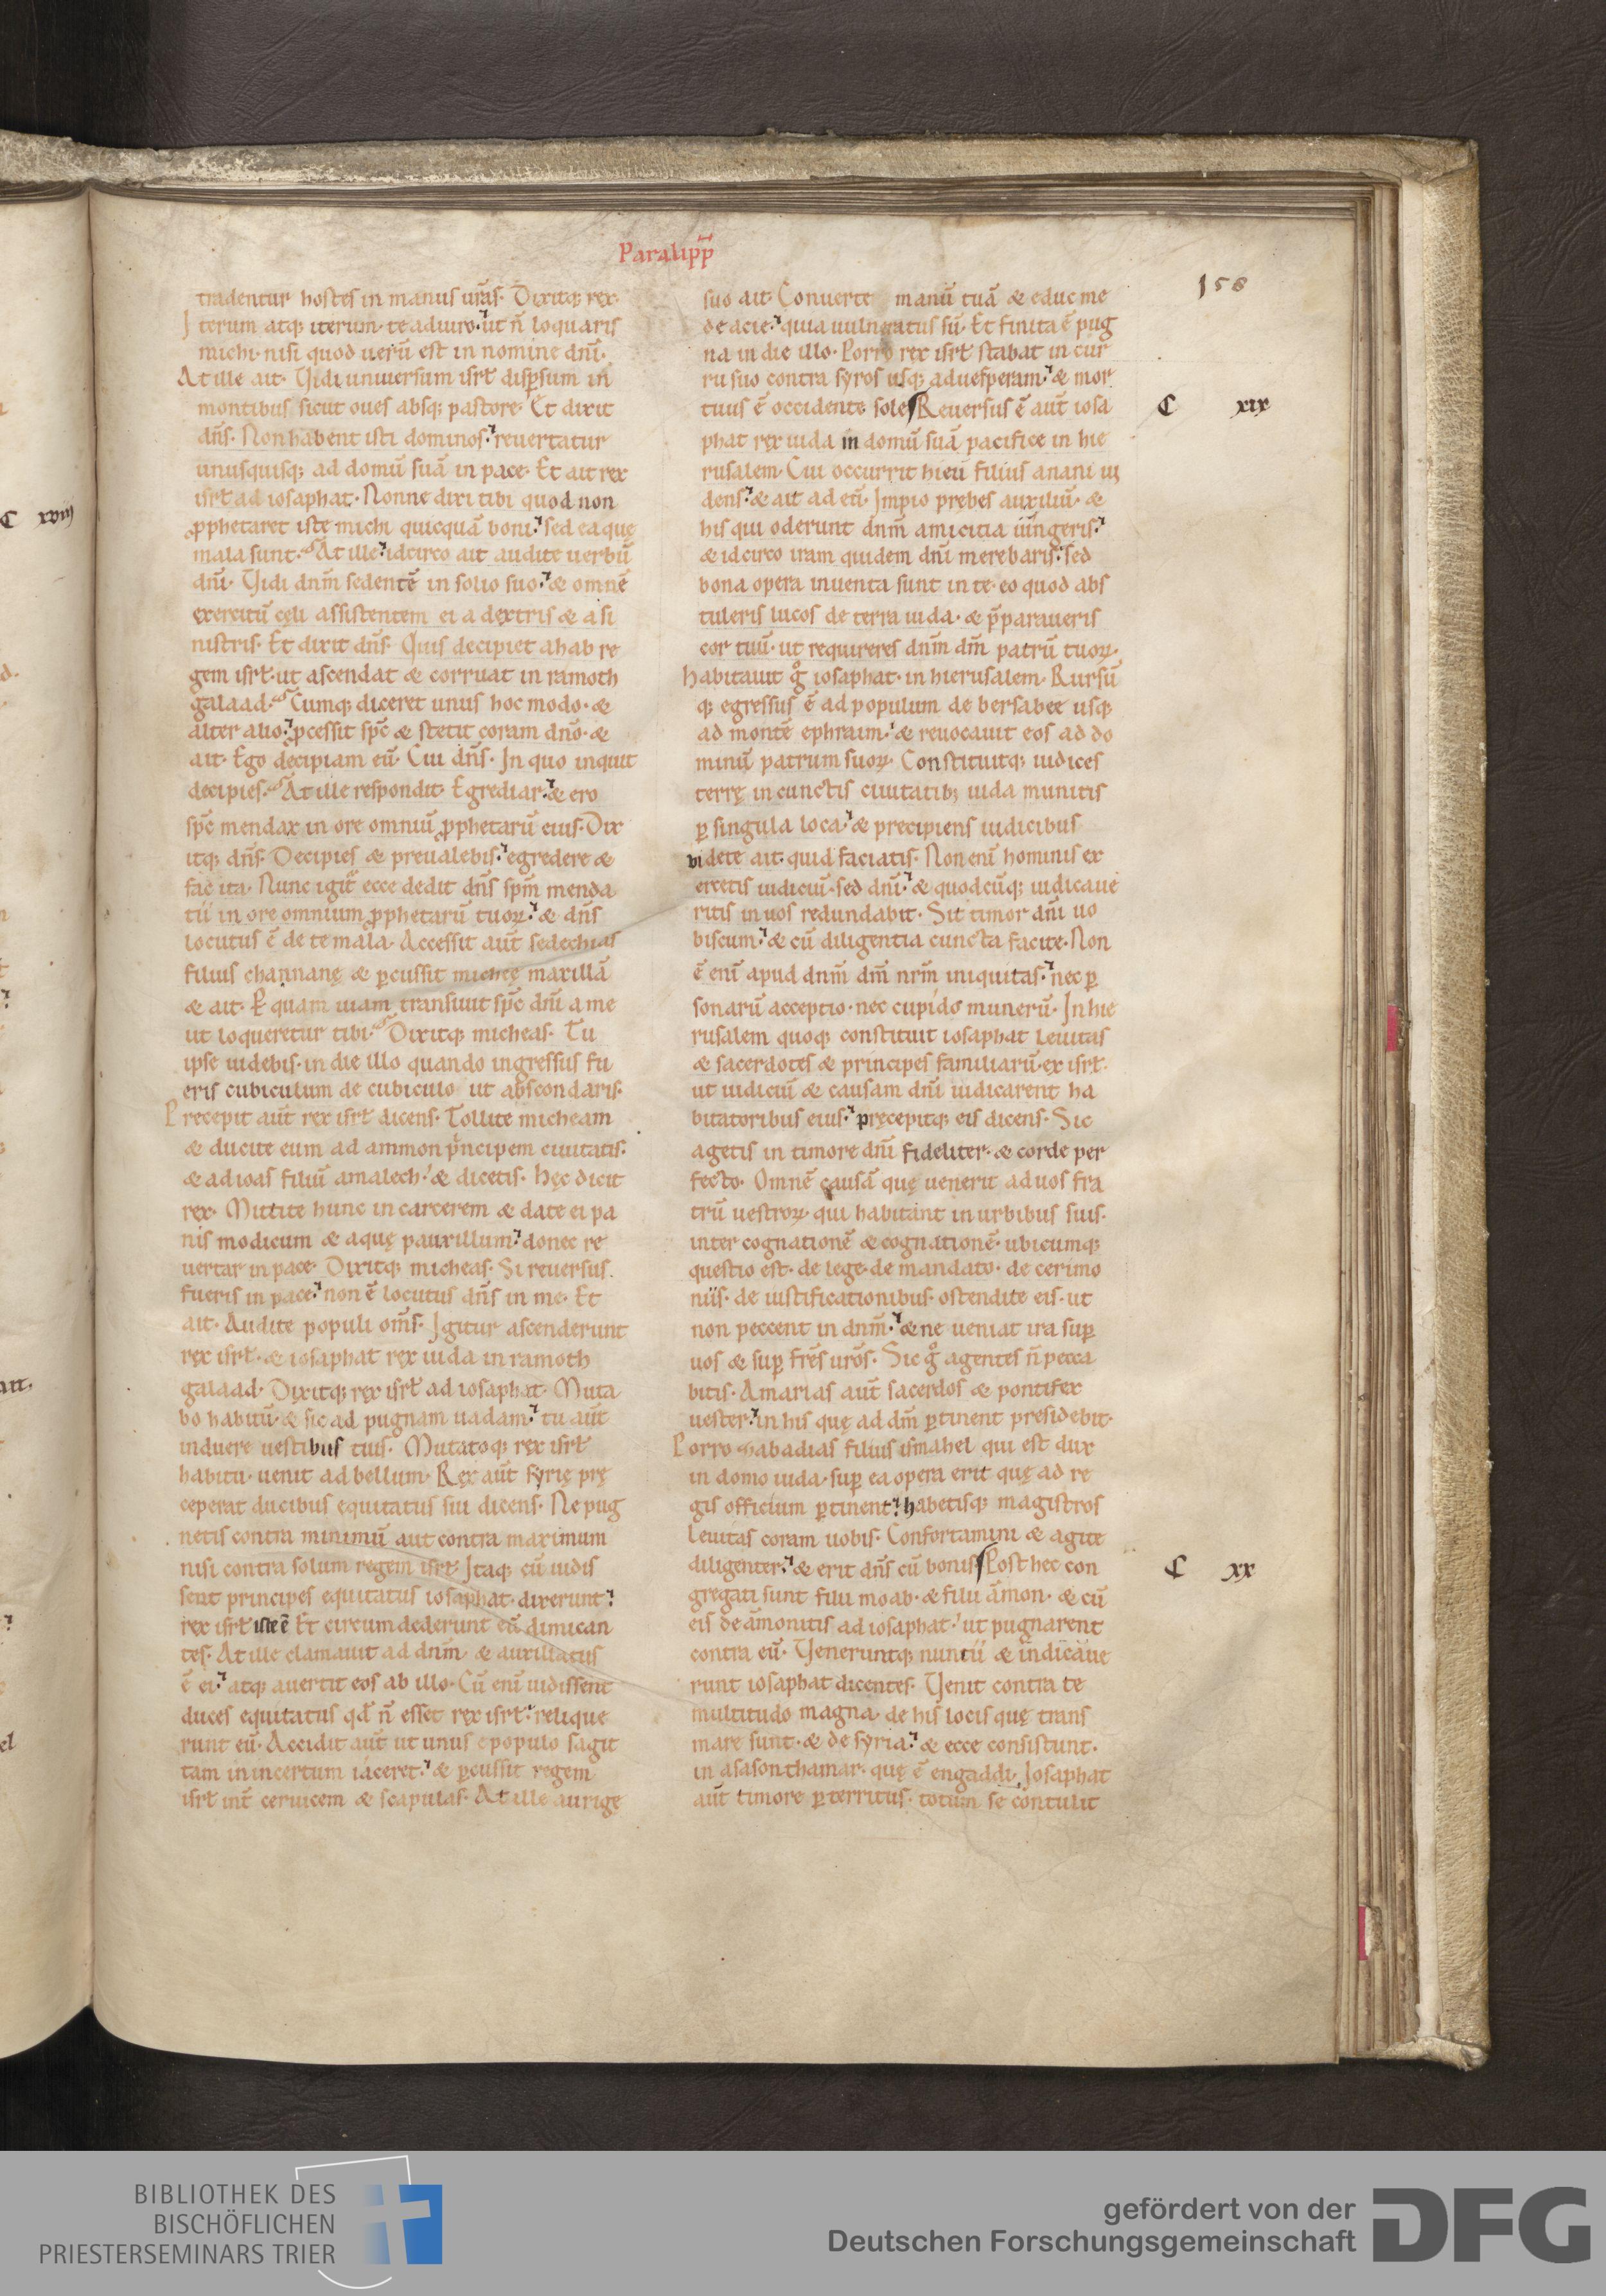 Paralipp̄
158
tradentur hostes in manus ur̄as. Dixitq; rex.
Iterum atq; iterum te adiuro. ut n̄ loquaris
michi. nisi quod uerū est in nomine dn̄i.
At ille ait. Vidi uniuersum isrl̄ disp̄sum in
montibus sicut oues absq; pastore. Et dixit
dn̄s. Non habent isti dominos. reuertatur
unusquisq; ad domū suā in pace. Et ait rex
isrl̄ ad iosaphat. Nonne dixi tibi quod non
ꝓphetaret iste michi quicquā boni. sed ea quę
mala sunt. At ille. idcirco ait audite uerbū
dn̄i. Vidi dnm̄ sedentē in solio suo. & omnē
exercitū cęli assistentem ei a dextris & a si
nistris. Et dixit dn̄s. Quis decipiet ahab re
gem isrl̄. ut ascendat & corruat in ramoth
galaad. Cumq; diceret unus hoc modo. &
alter alio. ꝓcessit sp̄c & stetit coram dn̄o. &
ait. Ego decipiam eū. Cui dn̄s. In quo inquit
decipies. At ille respondit. Egrediar. & ero
sp̄c mendax in ore omniū ꝓphetarū eius. Dix
itq; dn̄s. Decipies & preualebis. egredere &
fac ita. Nunc igit̄ ecce dedit dn̄s spm̄ menda
tii in ore omnium ꝓphetarū tuoꝝ. & dn̄s
locutus ē de te mala. Accessit aut̄ sedechias
filius channanę & ꝑcussit micheę maxillā
& ait. Ꝑ quam uiam transiuit sp̄c dn̄i a me
ut loqueretur tibi. Dixitq; micheas. Tu
ipse uidebis. in die illo quando ingressus fu
eris cubiculum de cubiculo ut abscondaris.
Precepit aut̄ rex isrl̄ dicens. Tollite micheam
& ducite eum ad ammon pͥncipem ciuitatis.
& ad ioas filiū amalech. & dicetis. Hęc dicit
rex. Mittite hunc in carcerem & date ei pa
nis modicum & aquę pauxillum. donec re
uertar in pace. Dixitq; micheas. Si reuersus
fueris in pace. non ē locutus dn̄s in me. Et
ait. Audite populi om̄s. Igitur ascenderunt
rex isrl̄. & iosaphat rex iuda in ramoth
galaad. Dixitq; rex isrl̄ ad iosaphat. Muta
bo habitū. & sic ad pugnam uadam. tu aut̄
induere uestibus tuis. Mutatoq; rex isrl̄
habitu. uenit ad bellum. Rex aut̄ syrię prę
ceperat ducibus equitatus sui dicens. Ne pug
netis contra minimū aut contra maximum
nisi contra solum regem isrl̄. Itaq; cū uidis
sent principes equitatus iosaphat. dixerunt.
rex isrl̄ iste ē. Et circumdederunt eū dimican
tes. At ille clamauit ad dnm̄ & auxiliatus
ē ei. atq; auertit eos ab illo. Cū eni uidissent
duces equitatus qd̄ n̄ esset rex isrl̄. relique
runt eū. Accidit aut̄ ut unus e populo sagit
tam in incertum iaceret. & ꝑcussit regem
isrl̄ int̄ ceruicem & scapulas. At ille aurige
suo ait. Conuerte manū tuā & educ me
de acie. quia uulneratus sū. Et finita ē pug
na in die illo. Porro rex isrl̄ stabat in cur
ru suo contra syros usq; ad uesperam. & mor
tuus ē occidente sole. Reuersus ē aut̄ iosa
C xix
phat rex iuda in domū suā pacifice in hie
rusalem. Cui occurrit hieu filius anani ui
dens. & ait ad eū. Impio prebes auxiliū. &
his qui oderunt dnm̄ amicitia iungeris.
& idcirco iram quidem dn̄i merebaris. sed
bona opera inuenta sunt in te. eo quod abs
tuleris lucos de terra iuda. & p̄paraueris
cor tuū. ut requireres dnm̄ dm̄ patrū tuoꝝ.
Habitauit gͦ iosaphat. in hierusalem. Rursū
q; egressus ē ad populum de bersabee usq;
ad montē ephraim. & reuocauit eos ad do
minū patrum suoꝝ. Constituitq; iudices
terrę in cunctis ciuitatib; iuda munitis
ꝑ singula loca. & precipiens iudicibus
videte ait. quid faciatis. Non eni hominis ex
ercetis iudiciū. sed dn̄i. & quodcūq; iudicaue
ritis in uos redundabit. Sit timor dn̄i uo
biscum. & cū diligentia cuncta facite. Non
ē eni apud dnm̄ dm̄ nrm̄ iniquitas. nec ꝑ
sonarū acceptio. nec cupido munerū. In hie
rusalem quoq; constituit iosaphat leuitas
& sacerdotes & principes familiarū. ex isrl̄.
ut iudiciū & causam dn̄i iudicarent ha
bitatoribus eius. pręcepitq; eis dicens. Sic
agetis in timore dn̄i fideliter. & corde per
fecto. Omnē causā quę uenerit ad uos fra
trū uestroꝝ. qui habitant in urbibus suis.
inter cognationē & cognationē. ubicumq;
questio est. de lege. de mandato. de cerimo
niis. de iustificationibus. ostendite eis. ut
non peccent in dnm̄. & ne ueniat ira suꝑ
uos & suꝑ fr̄es ur̄os. Sic gͦ agentes n̄ pecca
bitis. Amarias aut̄ sacerdos & pontifex
uester. in his quę ad dm̄ ꝑtinent presidebit.
Porro zabadias filius ismahel qui est dux
in domo iuda. suꝑ ea opera erit quę ad re
gis officium ꝑtinent. habetisq; magistros
leuitas coram uobis. Confortamini & agite
diligenter. & erit dn̄s cū bonis. Post hec con
C xx
gregati sunt filii moab. & filii āmon. & cū
eis de āmonitis ad iosaphat. ut pugnarent
contra eū. Veneruntq; nuntii & indicaue
runt iosaphat dicentes. Venit contra te
multitudo magna. de his locis quę trans
mare sunt. & de syria. & ecce consistunt.
in asasonthamar. quę ē engaddi. Iosaphat
aut̄ timore ꝑterritus. totum se contulit
C xviij
BIBLIOTHEK DES
BISCHÖFLICHEN
PRIESTERSEMINARS TRIER
gefördert von der
Deutschen Forschungsgemeinschaft
DFG